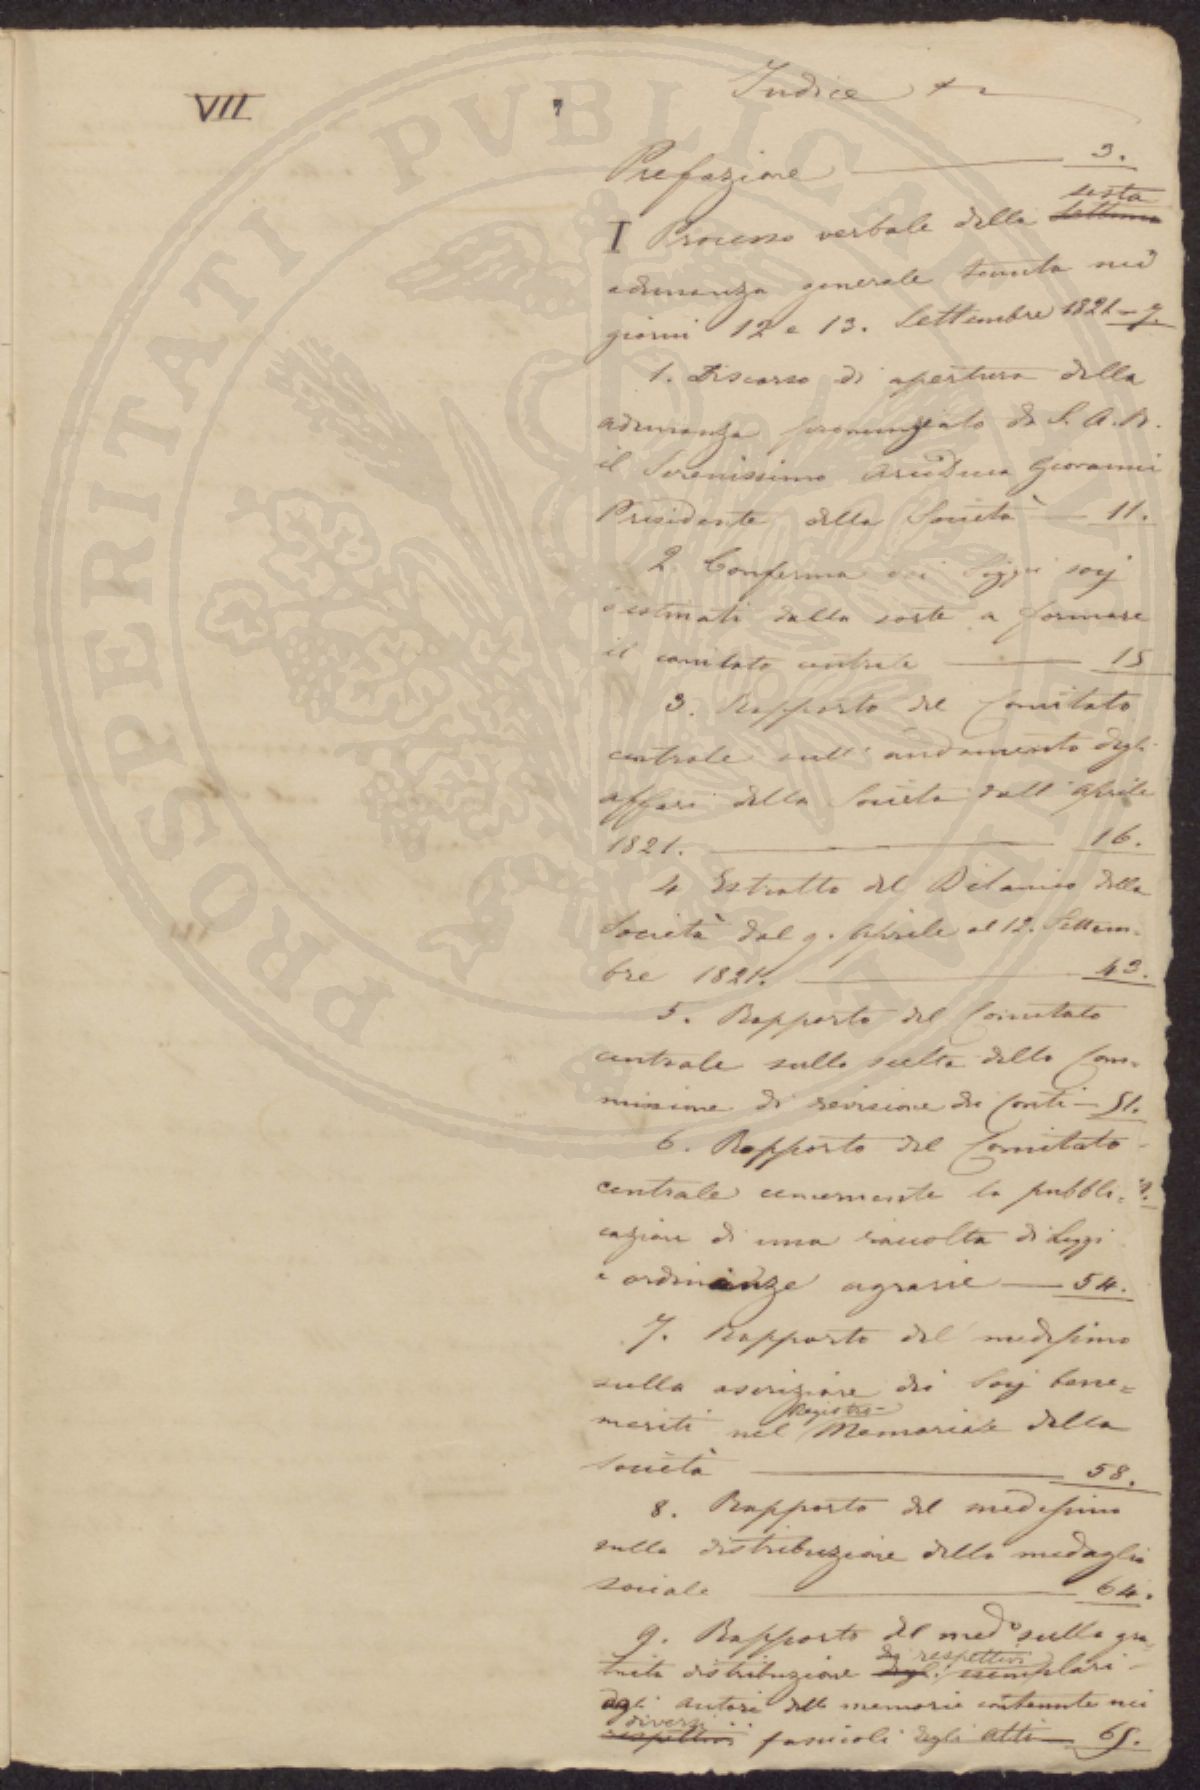 VII
7
Indice
Prefazione — 3.
sesta
I Processo verbale della settima
adunanza generale tenuta nei
giorni 12 e 13. Settembre 1821 — 7.
1. Discorso di apertura della
adunanza pronunziato da S. A. R.
il Serenissimo Arciduca Giovanni
Presidente della Società — 11.
2. Conferma dei Soggi socj
destinati dalla sorte a formare
il comitato centrale — 15
3. Rapporto del Comitato
centrale sull' andamento degli
affari della Società dall' Aprile
1821. — 16.
4 Estratto del Bilancio della
Società dal 9. Aprile al 12. Settem-
bre 1821. — 43.
5. Rapporto del Comitato
centrale sulla scelta della Com-
missione di revisione dei Conti — 51.
6. Rapporto del Comitato
centrale concernente la pubbli=
cazione di una raccolta di Leggi
e ordinanze agrarie — 54.
7. Rapporto del medesimo
sulla ascrizione dei Socj bene=
Registro
meriti nel Memoriale della
Società — 58.
8. Rapporto del medesimo
sulla distribuzione della medaglia
sociale — 64.
9. Rapporto del med.o sulla gra-
di respettivi
tuita distribuzione degli esemplari
agli autori delle memorie contenute nei
diversi
respettivi fascicoli degli Atti — 65.
PROSPERITATI PVBLICAE AVGENDAE